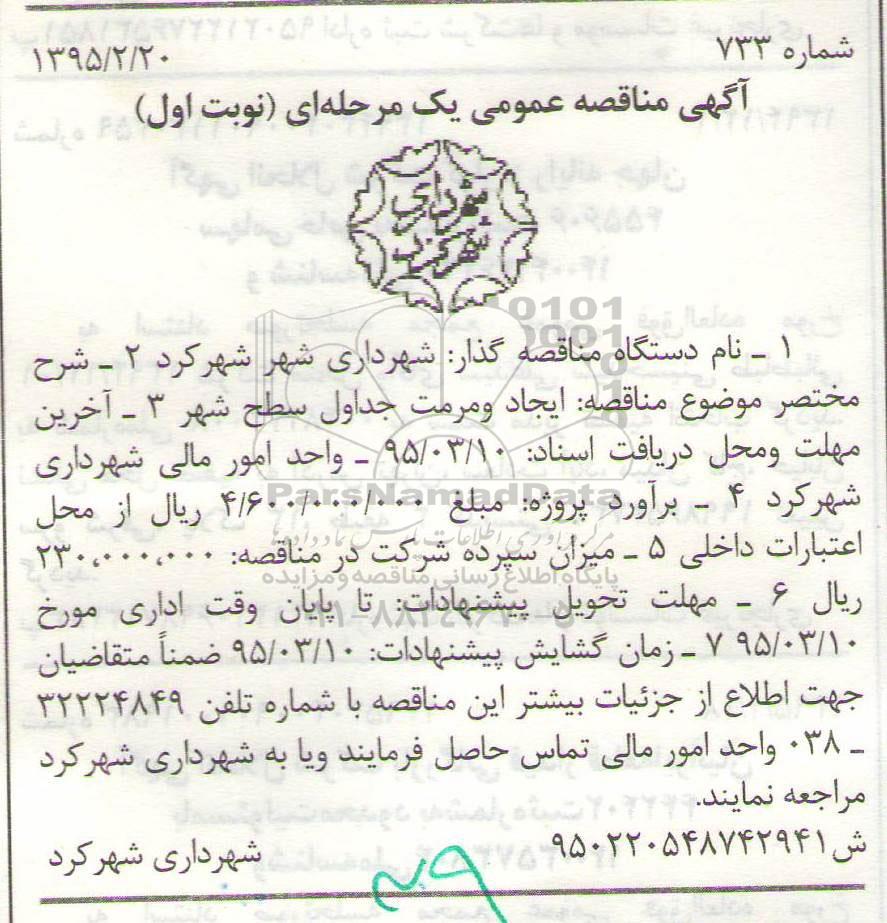 شماره ۷۳۳
۱۳۹۵/۲/۲۰
آگهی مناقصه عمومی یک مرحله‌ای (نوبت اول)
شهرداری
شهرکرد
۱ ـ نام دستگاه مناقصه گذار: شهرداری شهر شهرکرد ۲ ـ شرح
مختصر موضوع مناقصه: ایجاد ومرمت جداول سطح شهر ۳ ـ آخرین
مهلت ومحل دریافت اسناد: ۹۵/۰۳/۱۰ ـ واحد امور مالی شهرداری
شهرکرد ۴ ـ برآورد پروژه: مبلغ ۴/۶۰۰/۰۰۰/۰۰۰ ریال از محل
ParsNamadData
اعتبارات داخلی ۵ ـ میزان سپرده شرکت در مناقصه: ۲۳۰،۰۰۰،۰۰۰
پایگاه اطلاع رسانی مناقصه و مزایده
ریال ۶ ـ مهلت تحویل پیشنهادات: تا پایان وقت اداری مورخ
۹۵/۰۳/۱۰ ۷ ـ زمان گشایش پیشنهادات: ۹۵/۰۳/۱۰ ضمناً متقاضیان
جهت اطلاع از جزئیات بیشتر این مناقصه با شماره تلفن ۳۲۲۲۴۸۴۹
ـ ۰۳۸ واحد امور مالی تماس حاصل فرمایند ویا به شهرداری شهرکرد
مراجعه نمایند.
ش۹۵۰۲۲۰۵۴۸۷۴۲۹۴۱
شهرداری شهرکرد